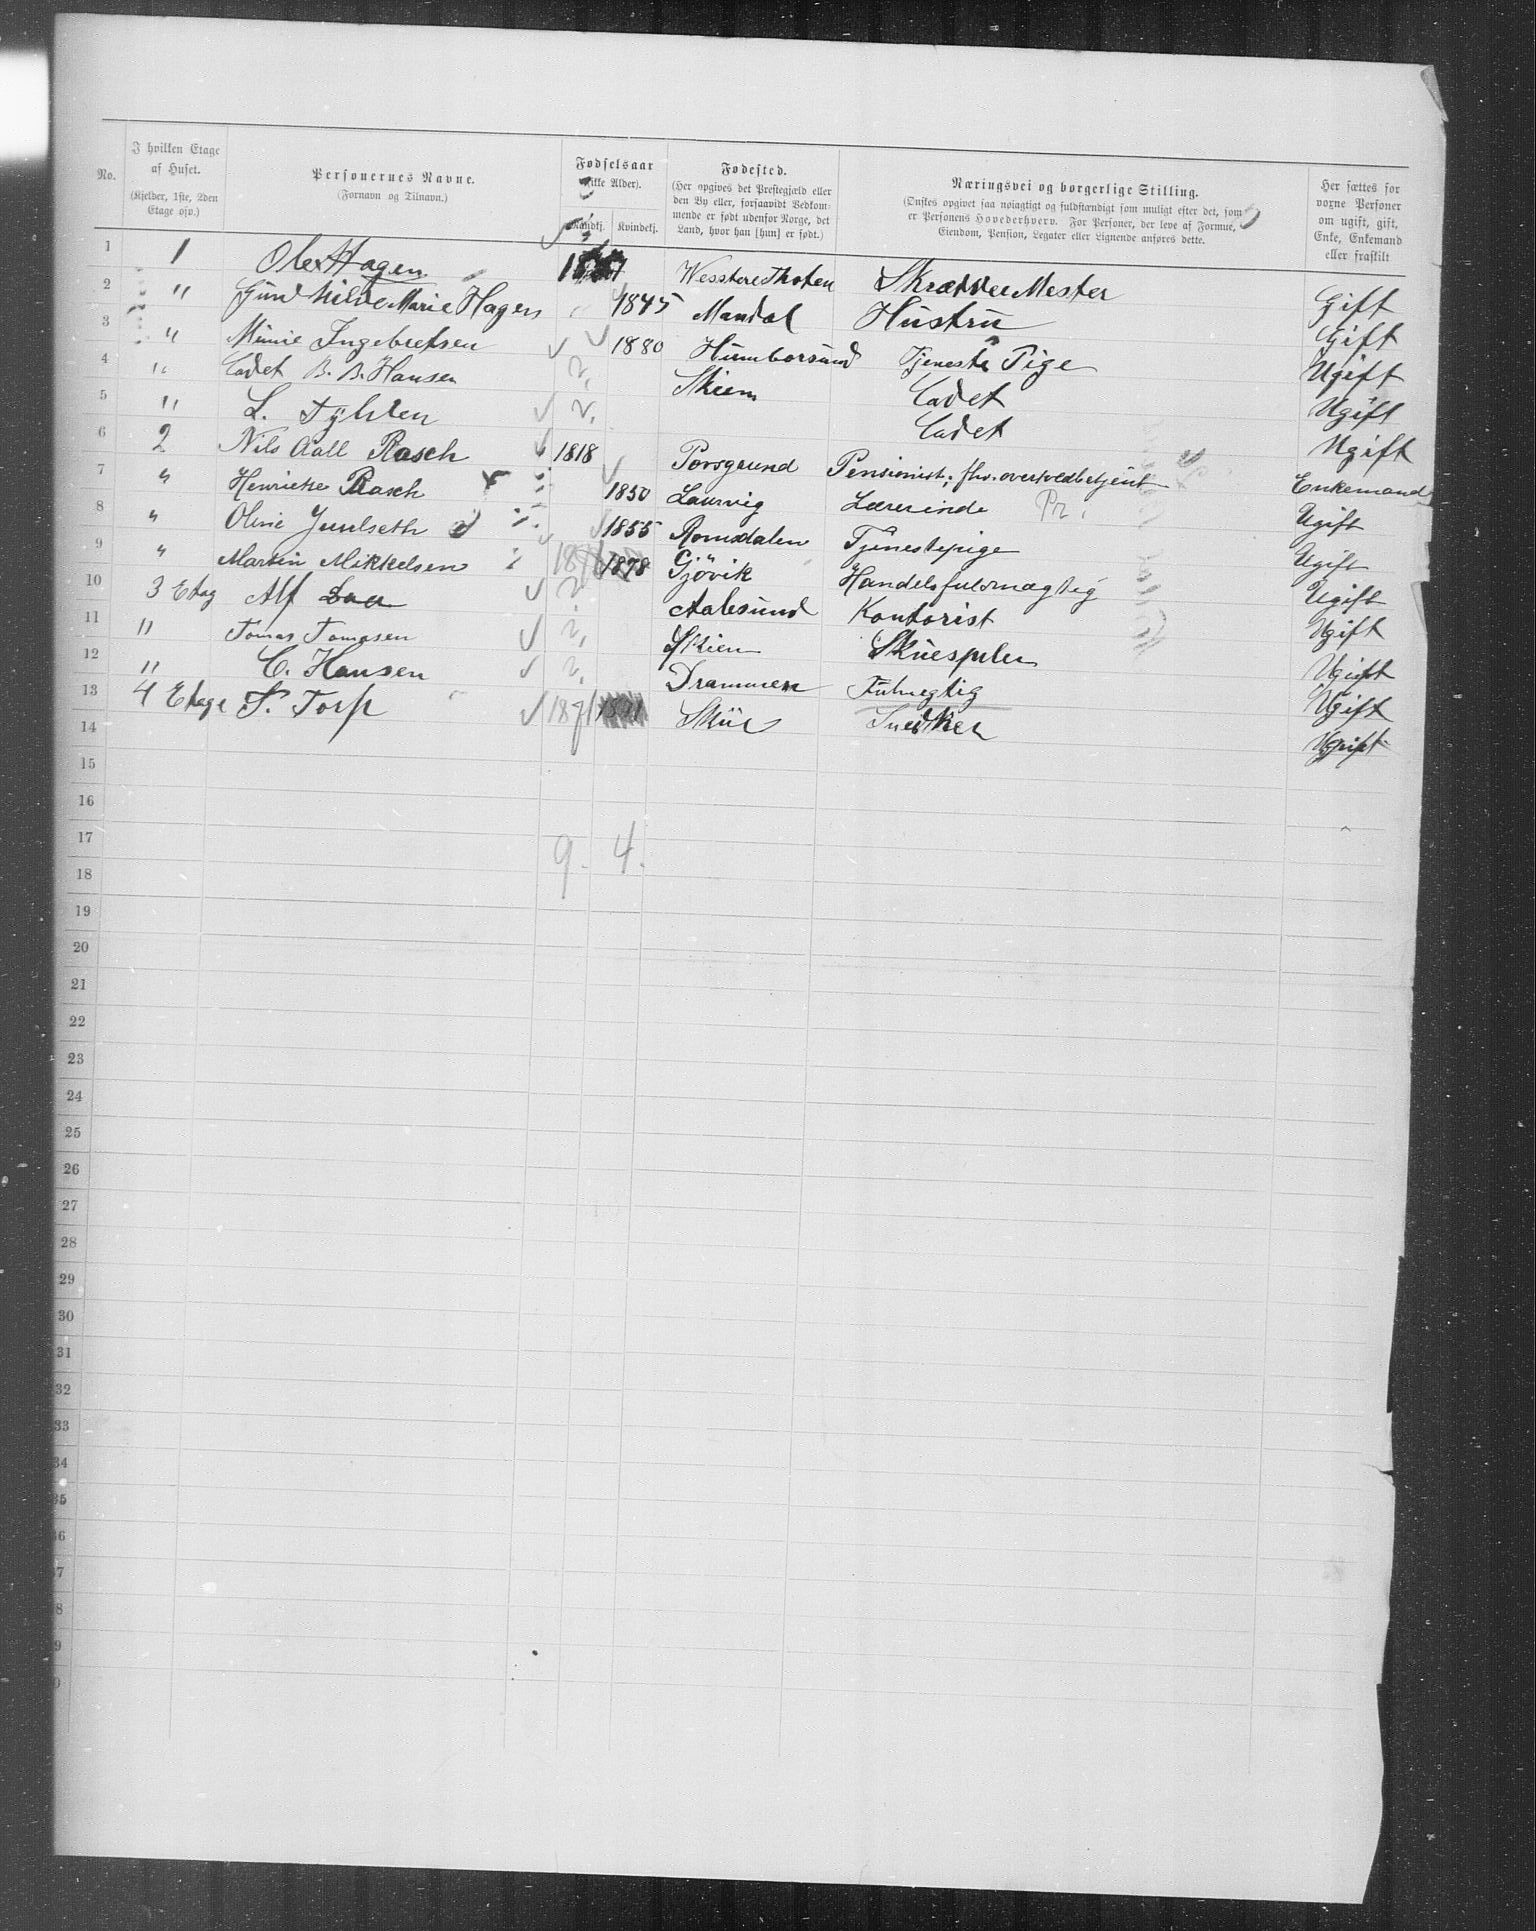 No. | I hvilken Etage af Huset. (Kjelder, 1ste, 2den Etage osv.) | Personernes Navne. (Fornavn og Tilnavn.) | Fødselsaar (ikke Alder). Mandkj. Kvindekj. | Fødested. (Her opgives det Prestegjæld eller den By eller, forsaavidt Vedkommende er født udenfor Norge, det Land, hvor han [hun] er født.) | Næringsvei og borgerlige Stilling. (Ønskes opgivet saa nøiagtigt og fuldstændigt som muligt efter det, som er Personens Hovederhverv. For Personer, der leve af Formue, Eiendom, Pension, Legater eller Lignende anføres dette. | Her sættes for voxne Personer om ugift, gift, Enke, Enkemand eller fraskilt
1 | 1 | Ole Hagen | Skrædder Mester | Gift
2 | " | Marie Hagen | 1845 | Mandal | Hustru | Gift
3 | " | Minie Ingebretsen | 1880 | Humborsund | Tjeneste Pige | Ugift
4 | " | Cadet B. B. Hansen | ?, | Skien | Cadet | Ugift
5 | " | L. | ?, | Cadet | Ugift
6 | 2 | Nils Aall Rasch | 1818 | Porsgrund | Pensionist, fhv. overtoldbetjent | Enkemand
7 | " | Henrieke Rasch | 1850 | Laurvig | Lærerinde Pr. | Ugift
8 | " | Oline Juulseth | 1855 | Romsdalen | Tjenestepige | Ugift
9 | " | Martin Mikkelsen | 1878 | Gjövik | Handelsfuldmægtig | Ugift
10 | 3 Etag | Alf | ? | Aalesund | Kontorist | Ugift
11 | " | Tomas Tomasen | ?, | Skien | Skuespiler | Ugift
12 | " | C. Hansen | ?, | Drammen | Fulmegtig | Ugift
13 | 4 Etage | S. Torp | 1871 | Snedker | Ugift
14
15
16
17 | 9. 4.
18
19
20
21
22
23
24
25
26
27
28
29
30
31
32
33
34
35
36